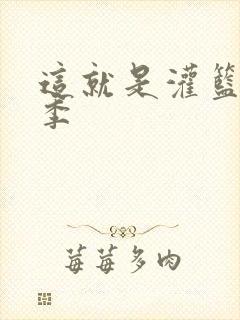 這就是灌籃
季
莓莓多肉